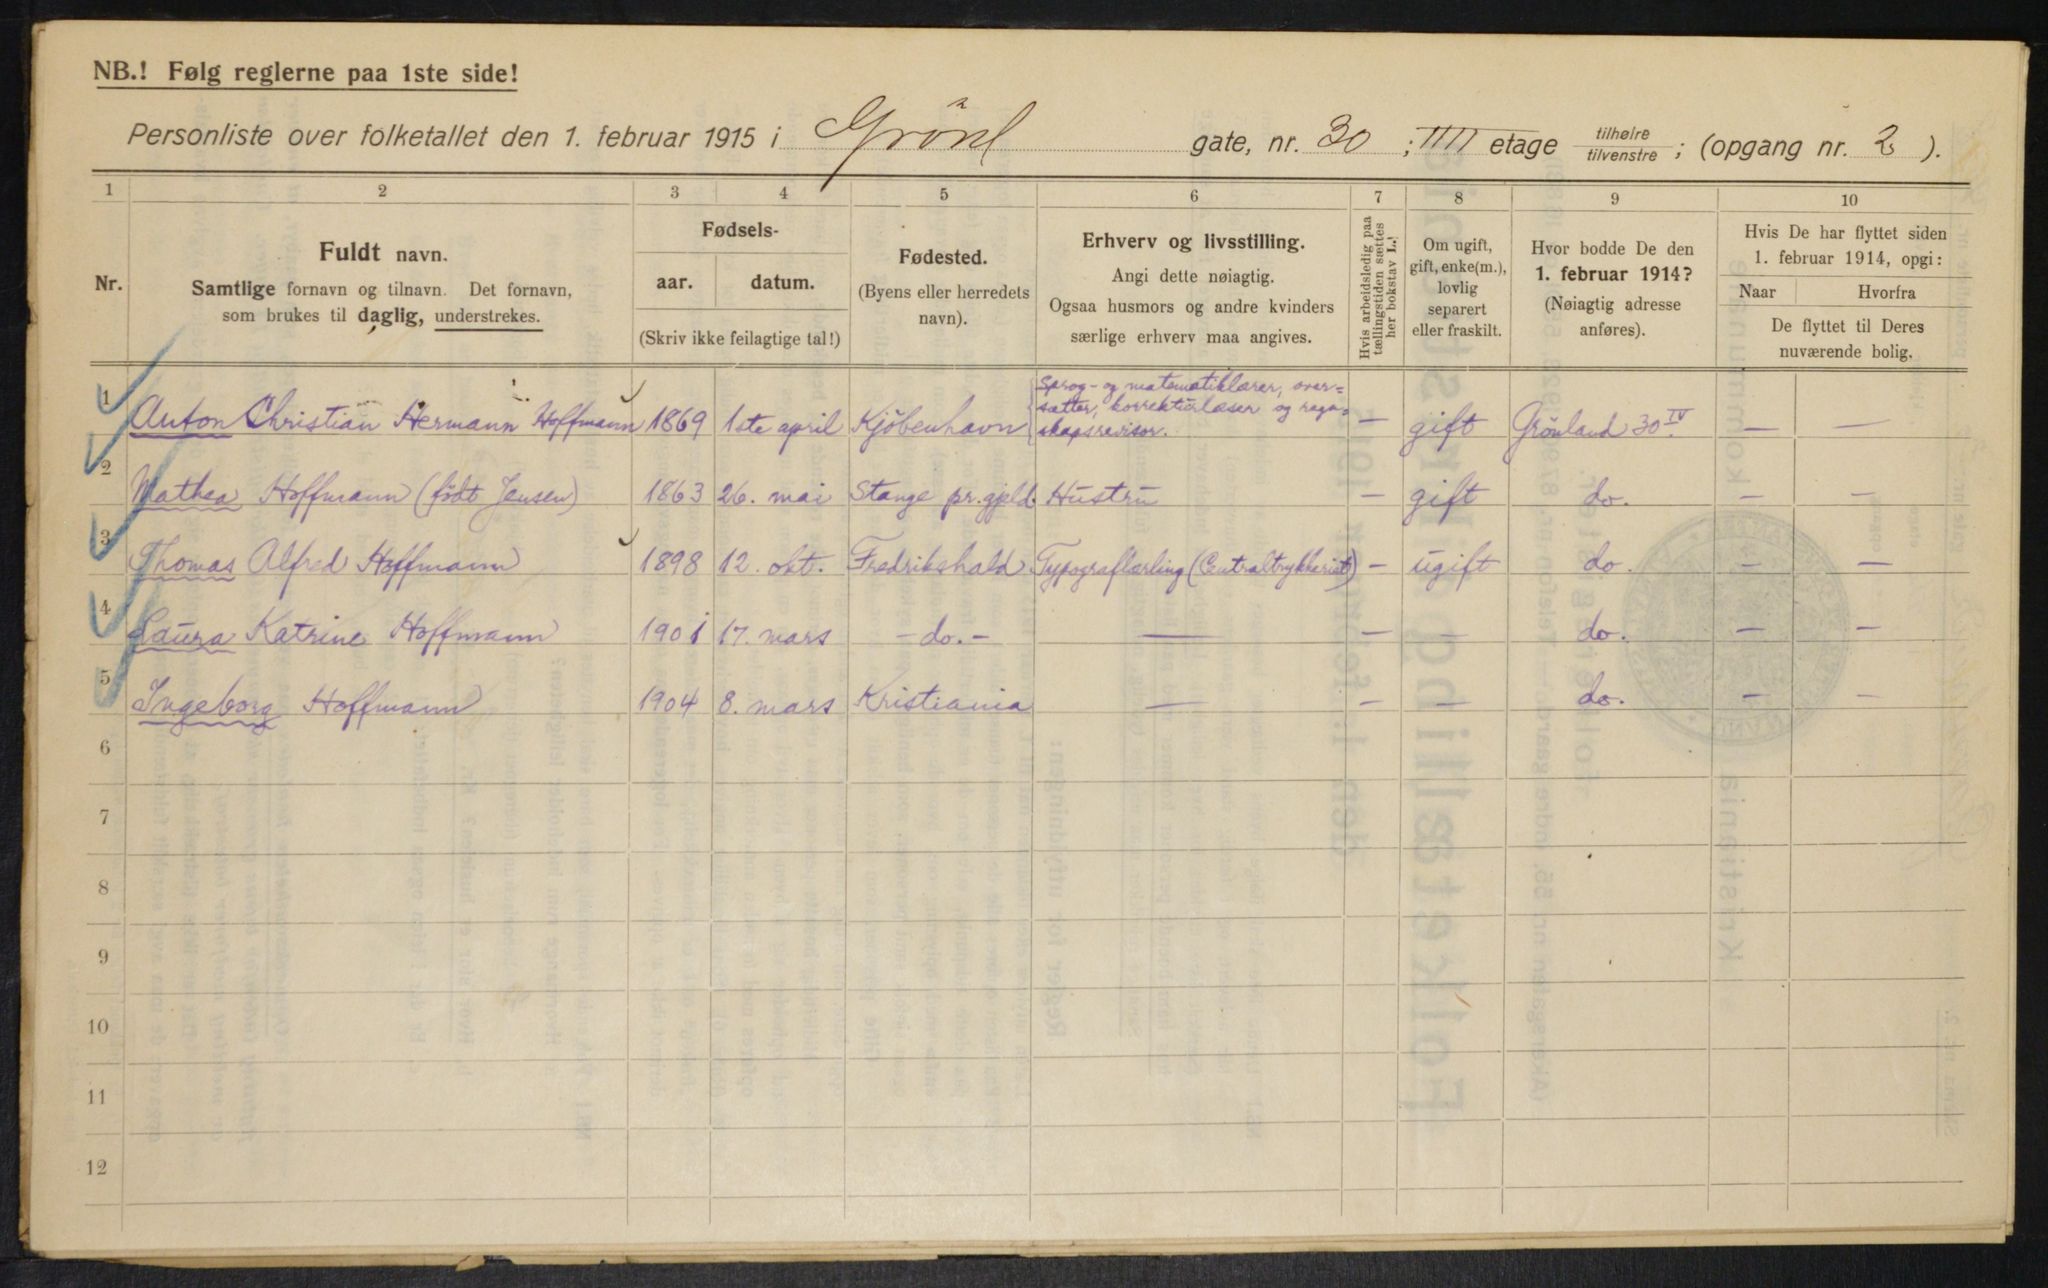 NB.! Følg reglerne paa 1ste side!
Personliste over folketallet den 1. februar 1915 i Grönl gate, nr. 30 ; IIII etage tilhøire tilvenstre ; (opgang nr. 2 ).
1 2 3 4 5 6 7 8 9 10
Nr.
Fuldt navn.
Samtlige fornavn og tilnavn. Det fornavn,
som brukes til daglig, understrekes.
Fødsels-
aar. datum.
(Skriv ikke feilagtige tal!)
Fødested.
(Byens eller herredets
navn).
Erhverv og livsstilling.
Angi dette nøiagtig.
Ogsaa husmors og andre kvinders
særlige erhverv maa angives.
Hvis arbeidsledig paa
tællingstiden sættes
her bokstav L.!
Om ugift,
gift, enke(m.),
lovlig
separert
eller fraskilt.
Hvor bodde De den
1. februar 1914?
(Nøiagtig adresse
anføres).
Hvis De har flyttet siden
1. februar 1914, opgi:
Naar Hvorfra
De flyttet til Deres
nuværende bolig.
1 Anton Christian Hermann Hoffmann 1869 1ste april Kjöbenhavn Sprog- og matematiklærer, over-
sætter, korrekturlæser og regn-
skapsrevisor. — gift Grönland 30 IV. — —
2 Mathea Hoffmann (födt Jensen) 1863 26. mai Stange pr.gjeld. Hustru — gift do. — —
3 Thomas Alfred Hoffmann 1898 12. okt. Fredrikshald Typograflærling (Centraltrykkeriet) — ugift do. — —
4 Laura Katrine Hoffmann 1901 17. mars — do. — — — — do. — —
5 Ingeborg Hoffmann 1904 8. mars Kristiania — — — do. — —
6
7
8
9
10
11
12